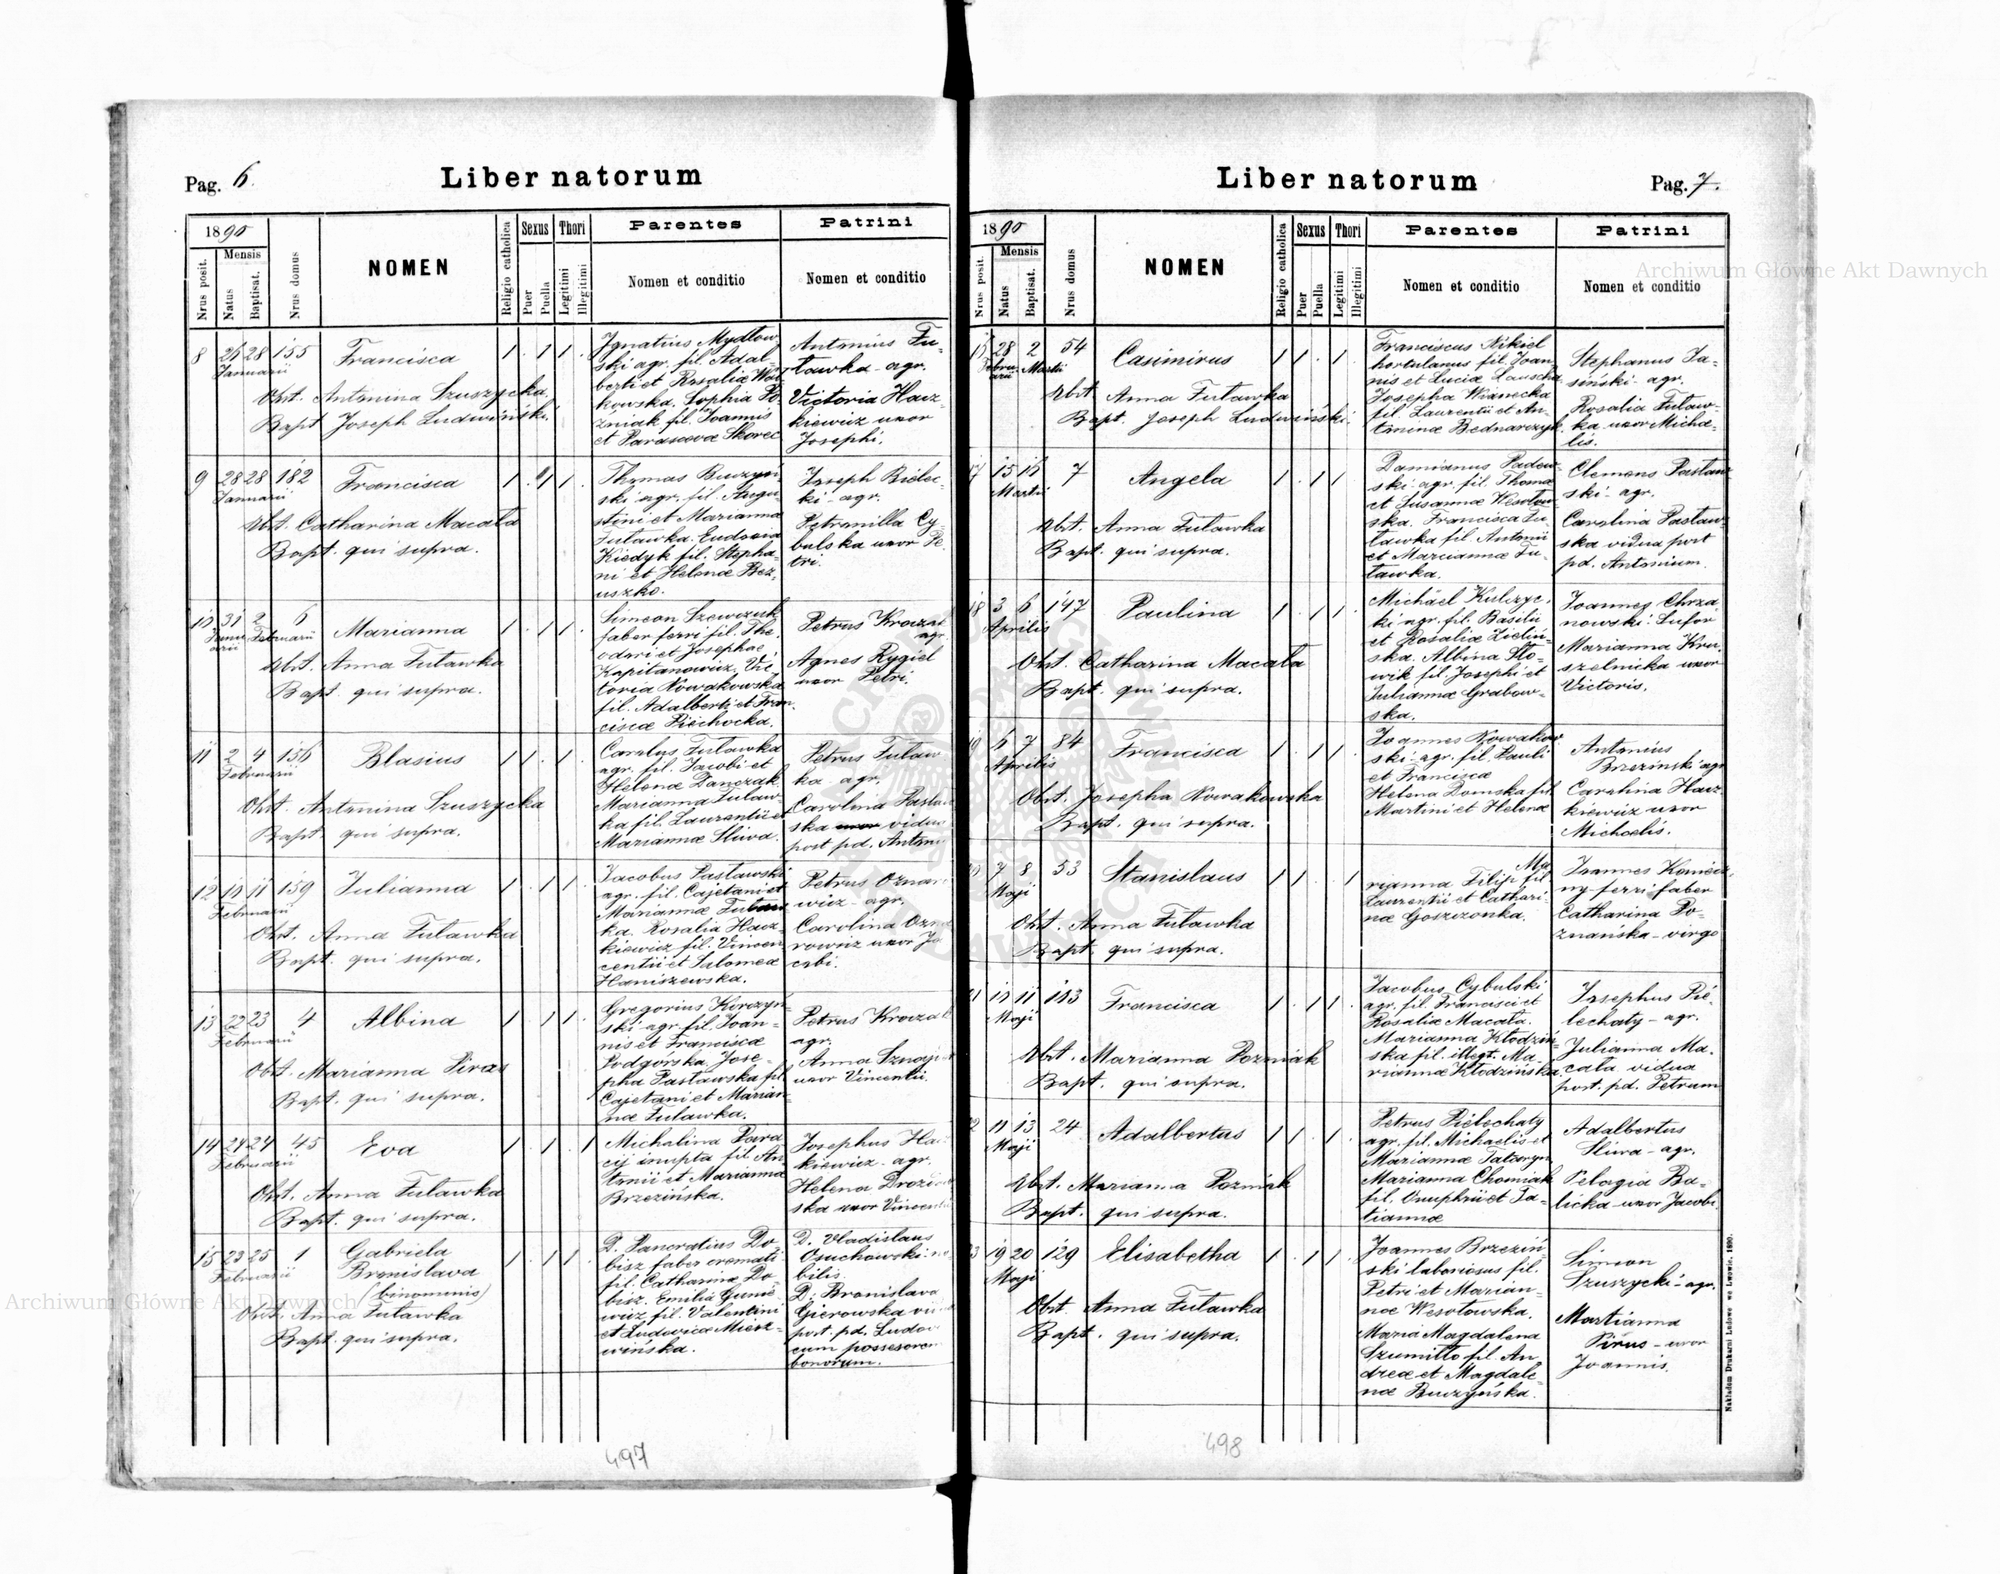 Pag. 6.
Liber natorum
1890
Mensis
Nrus posit.
Natus
Baptisat.
Nrus domus
NOMEN
Religio catholica
Sexus
Puer
Puella
Thori
Legitimi
Illegitimi
Parentes
Nomen et conditio
Patrini
Nomen et conditio
8 26 28 155 Francisca 1 . 1 1 .
Januarii
Obst. Antonina Szuszycka
Bapt Joseph Ludwiński.
Ignatius Mydłow
ski agr. fil. Adal-
berti et Rosaliæ
kowska. Sophia Po-
zniak fil. Joannis
et Parascevæ Skorec
Antonius Fu-
tawka - agr.
Victoria Hacz
kiewicz uxor
Josephi.
9 28 28 182 Francisca 1 . 1 1 .
Januarii
Obst. Catharina Macała
Bapt. qui supra.
Thomas Buczyń
ski agr. fil. Augu-
stini et Marianna
Futawka. Eudoxia
Kiedyk fil. Stepha-
ni et Helenæ Bez-
uszko.
Joseph Bielec-
ki - agr.
Petronilla Cy
bulska uxor Pe
tri.
10 31 2 6 Marianna 1 . 1 1 .
Januarii Februarii
Obst. Anna Futawka
Bapt. qui supra.
Simeon Szewczuk
faber ferri fil. The-
odori et Josephæ
Kapitanowicz. Vic
toria Nowakowska
fil. Adalberti et Fran
ciscæ Piechocka.
Petrus Kroczak
agr.
Agnes Rygiel
uxor Petri.
11 2 4 156 Blasius 1 1 . 1 .
Februarii
Obst. Antonina Szuszycka
Bapt. qui supra.
Carolus Futawka
agr. fil. Jacobi et
Helenæ Danczak
Marianna Futaw-
ka fil. Laurentii et
Mariannæ Śliwa.
Petrus Futaw
ka - agr.
Carolina Pastaw
ska uxor vidua
post pd. Antoni
12 10 11 159 Julianna 1 . 1 1 .
Februarii
Obst. Anna Futawka
Bapt. qui supra.
Jacobus Pastawski
agr. fil. Cajetani et
Mariannæ Futaw
ka. Rosalia Hacz
kiewicz fil. Vincen
centii et Salomeæ
Haniszewska.
Petrus Oznar
wicz - agr.
Carolina Ozna
rowicz uxor Ja
cobi.
13 22 23 4 Albina 1 . 1 1 .
Februarii
Obst. Marianna Pirus
Bapt. qui supra.
Gregorius Kirczyń-
ski agr. fil. Joan-
nis et Franciscæ
Podgórska. Jose-
pha Pastawska fil.
Cajetani et Marian-
næ Futawka.
Petrus Kroczak
agr.
Anna Sznajd
uxor Vincentii.
14 24 24 45 Eva 1 . 1 . 1
Februarii
Obst. Anna Futawka
Bapt. qui supra.
Michalina Para
cij inupta fil. An
tonii et Mariannæ
Brzezińska.
Josephus Ha
kiewicz - agr.
Helena Drozi
ska uxor Vincentii
15 23 25 1 Gabriela
Februarii
Bronislava
(binominis)
1 . 1 1 .
Obst. Anna Futawka
Bapt. qui supra.
D. Pancratius Do
bisz faber cremati
fil. Catharinæ Do-
bisz. Emilia Gunie
wicz fil. Valentini
et Ludovicæ Miesz-
wińska.
D. Vladislaus
Osuchowski no
bilis.
D. Bronislava
Gierowska vi
post. pd. Ludov
cum possesorem
bonorum.
497
Liber natorum
Pag. 7.
1890
Mensis
Nrus posit.
Natus
Baptisat.
Nrus domus
NOMEN
Religio catholica
Sexus
Puer
Puella
Thori
Legitimi
Illegitimi
Parentes
Nomen et conditio
Patrini
Nomen et conditio
28 2 54 Casimirus 1 1 . 1 .
Februarii Martii
Obst. Anna Futawka
Bapt. Joseph Ludwiński.
Franciscus Nikiel
hortulanus fil. Joan-
nis et Luciæ Lauscha
Josepha Winnecka
fil. Laurentii et An-
toninæ Bednarczyk.
Stephanus Ja-
siński - agr.
Rosalia Futaw-
ka uxor Micha-
lis.
17 15 16 7 Angela 1 . 1 1 .
Martii
Obst. Anna Futawka
Bapt. qui supra.
Damianus Padow-
ski agr. fil. Thomæ
et Susannæ Wesołow
ska. Francisca Fu
tawka fil. Antonii
et Mariannæ Fu-
tawka.
Clemens Pastaw
ski - agr.
Carolina Pastaw-
ska vidua post
pd. Antonium.
18 3 6 147 Paulina 1 . 1 1 .
Aprilis
Obst. Catharina Macała
Bapt. qui supra.
Michäel Kulczyc-
ki agr. fil. Basilii
et Rosaliæ Zieliń-
ska. Albina Sło-
wik fil. Josephi et
Juliannæ Grabow-
ska.
Joannes Chrza-
nowski Sutor
Marianna Kru-
szelnicka uxor
Victoris.
19 6 7 84 Francisca 1 . 1 1 .
Aprilis
Obst. Josepha Nowakowska
Bapt. qui supra.
Joannes Nowakow
ski agr. fil. Pauli
et Franciscæ
Helena Domska fil.
Martini et Helenæ
Antonius
Brzezinski agr
Carolina Hacz
kiewicz uxor
Michaelis.
20 7 8 53 Stanislaus 1 1 .
Maji
Obst. Anna Futawka
Bapt. qui supra.
Ma
rianna Filip fil
Laurentii et Cathari-
næ Goszczonka.
Joannes Koniecz
ny ferri faber
Catharina Po-
znańska - virgo
21 10 11 103 Francisca 1 . 1 1 .
Maji
Obst. Marianna Pozniak
Bapt. qui supra.
Jacobus Cybulski
agr. fil. Francisci et
Rosaliæ Macała.
Marianna Kłodziń-
ska fil. illegt. Ma-
riannæ Kłodzińska.
Josephus Pie-
lechaty - agr.
Julianna Ma-
cała vidua
post. pd. Petrum
22 11 13 24 Adalbertus 1 1 . 1 .
Maji
Obst. Marianna Pozniak
Bapt. qui supra.
Petrus Pielechaty
agr. fil. Michaelis et
Mariannæ Tataryn
Marianna Chomiak
fil. Onuphrii et Ta-
tiannæ
Adalbertus
Śliwa - agr.
Pelagia Ba-
licka - uxor Jacobi.
23 19 20 129 Elisabetha 1 . 1 1 .
Maji
Obst. Anna Futawka
Bapt. qui supra.
Joannes Brzeziń-
ski laboriosus fil.
Petri et Marian-
næ Wesołowska.
Maria Magdalena
Szumiłło fil. An-
dreæ et Magdale-
næ Buczyńska.
Simeon
Szuszycki - agr.
Martianna
Pirus - uxor
Joannis.
498
Nakładem Drukarni Ludowej we Lwowie. 1890.
Archiwum Główne Akt Dawnych
Archiwum Główne Akt Dawnych